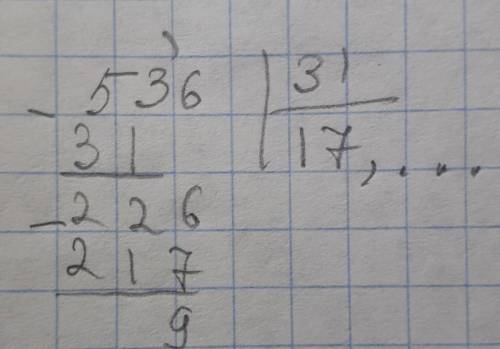 - 536 | 31
31 17,....
- 226
217
9